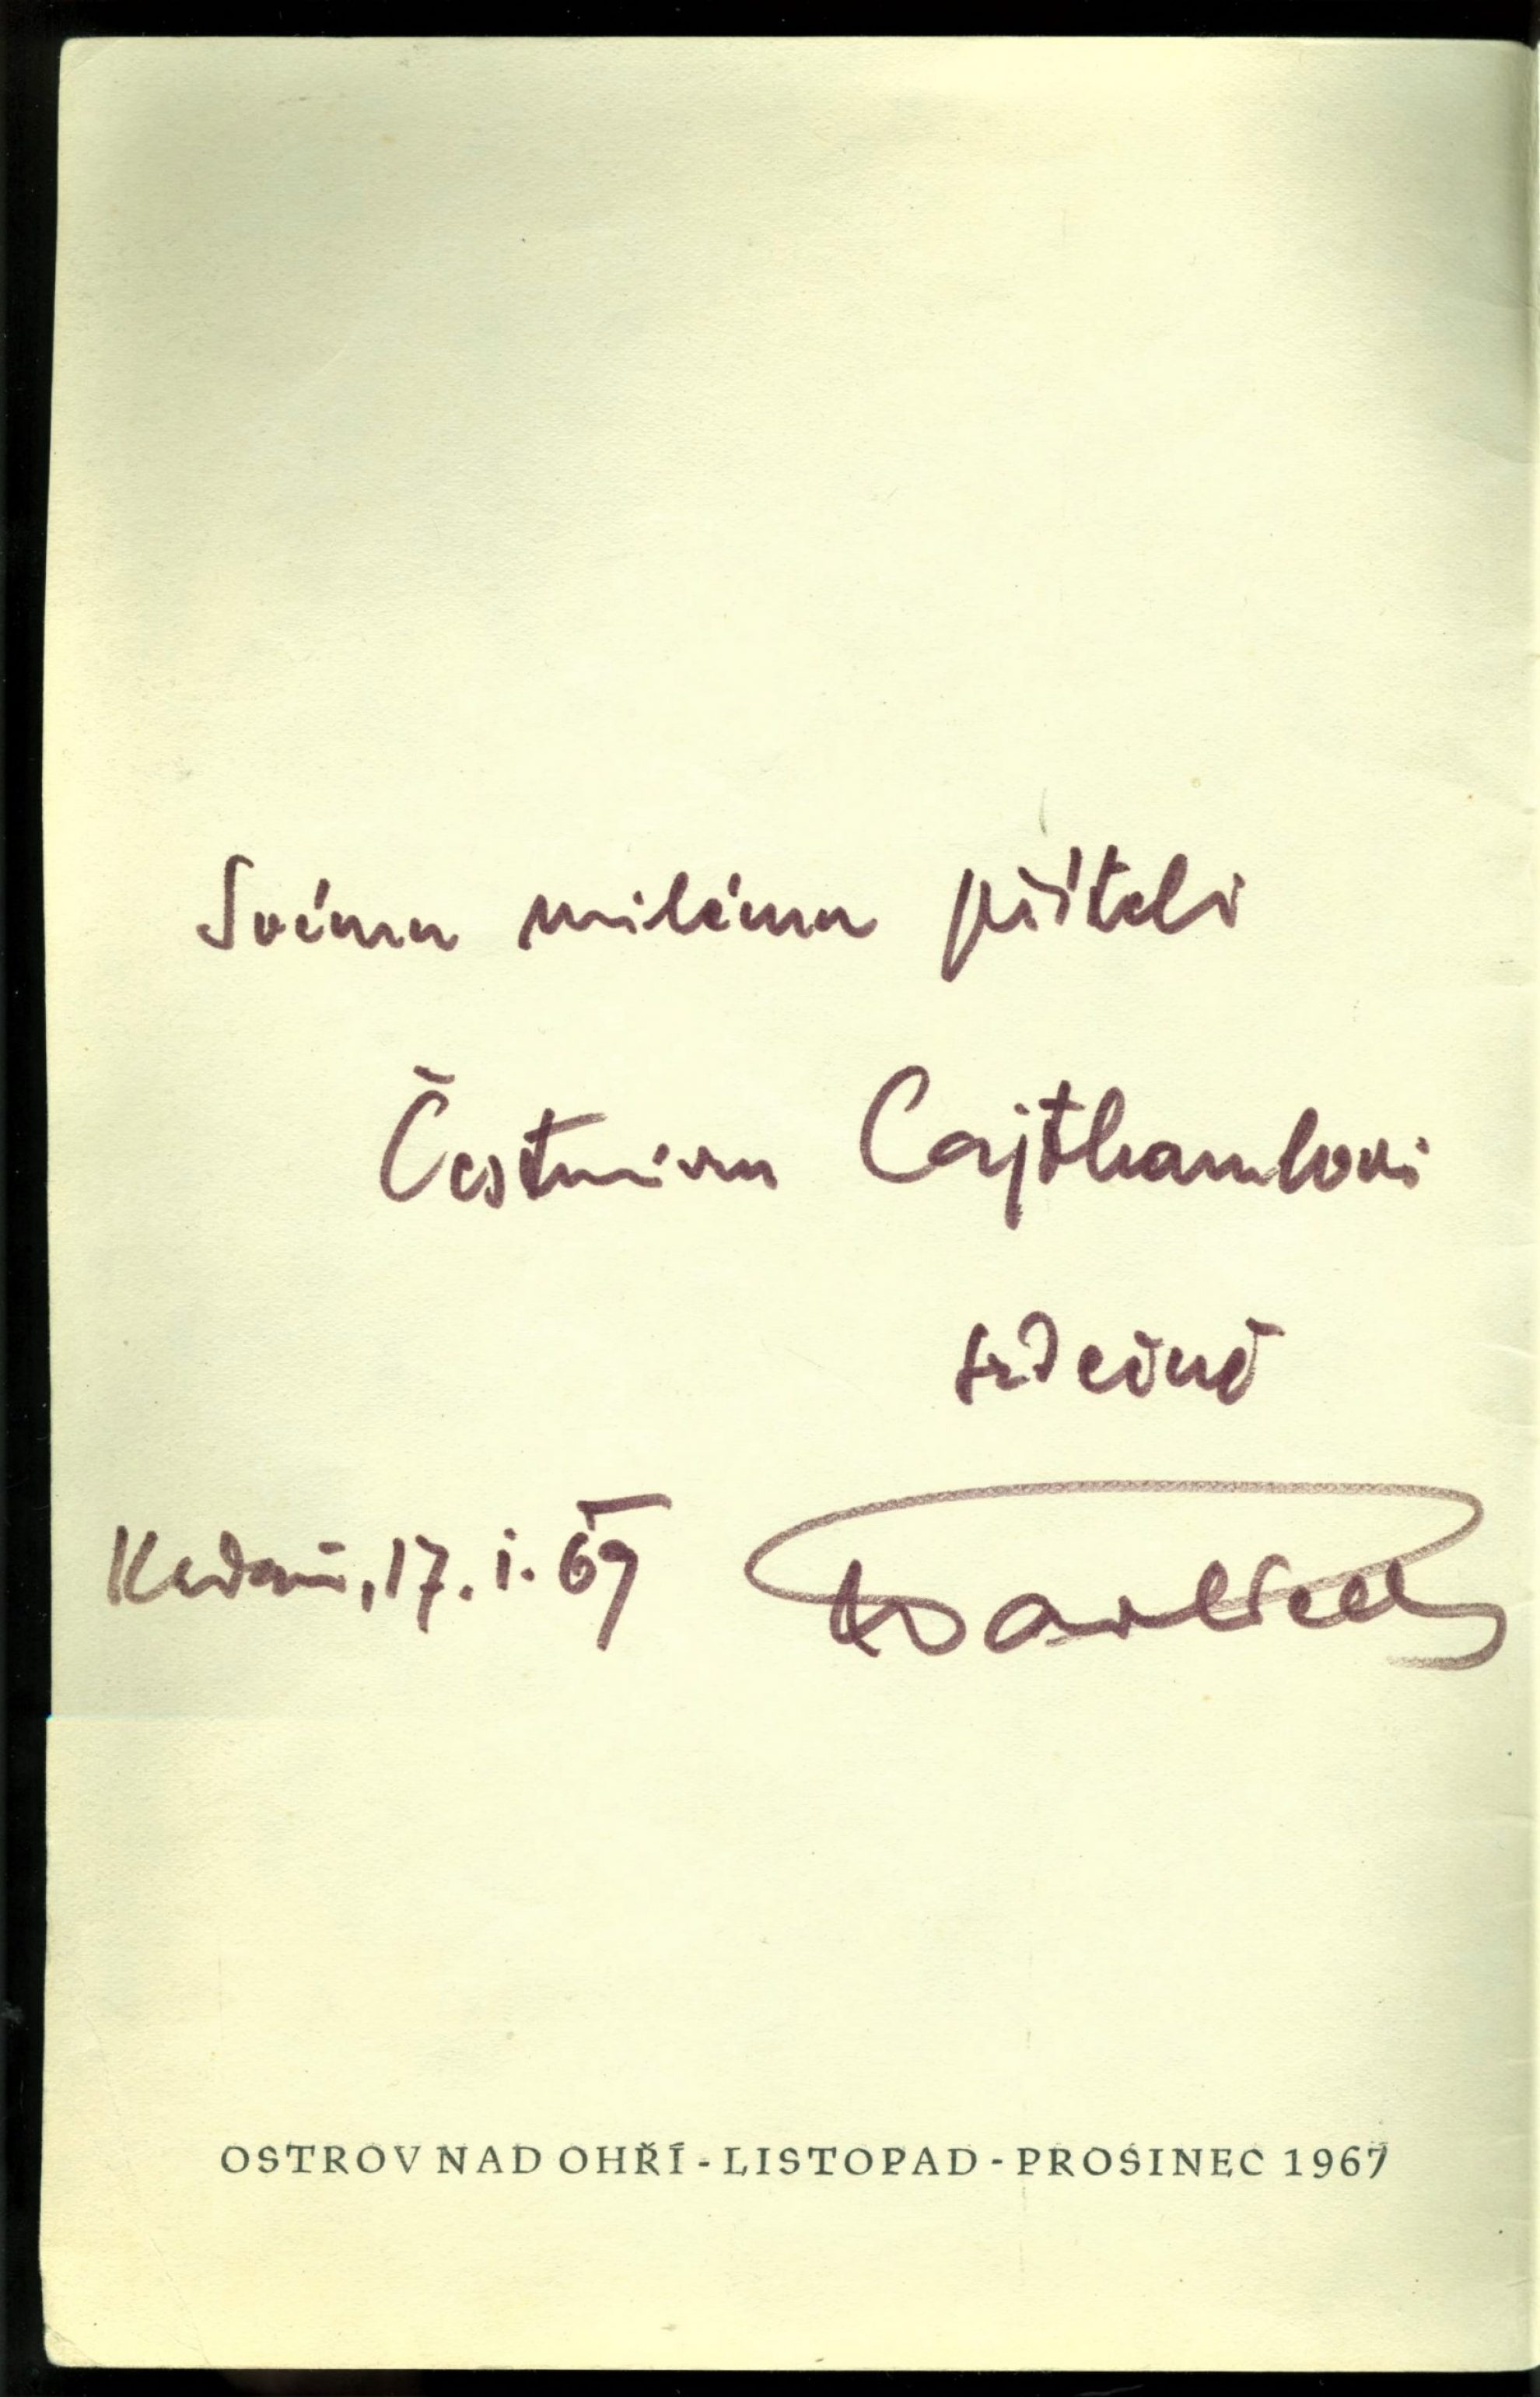 Svému milému příteli
Čestmíru Cajthamlovi
srdečně
Kadaň, 17. I. 69
OSTROV NAD OHŘÍ - LISTOPAD - PROSINEC 1967